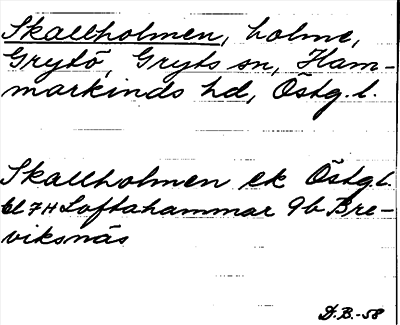 Skallholmen, holme,
Grytö, Gryts sn, Ham-
markinds hd, Östg. l.
Skallholmen ek Östg. l.
bl 7H Loftahammar 9b Bre-
viksnäs
D.B.-58